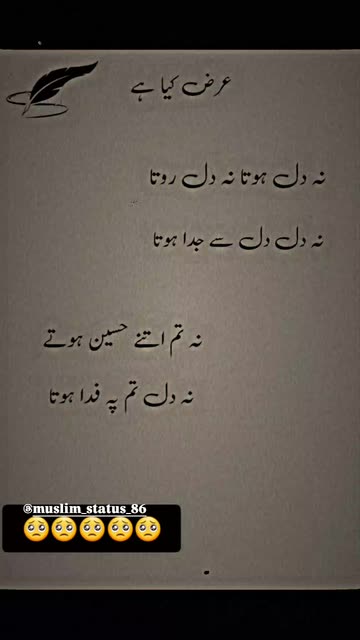 عرض کیا ہے
نہ دل ہوتا نہ دل روتا
نہ دل دل سے جدا ہوتا
نہ تم اتنے حسین ہوتے
نہ دل تم پہ فدا ہوتا
@muslim_status_86
🥺🥺🥺🥺🥺